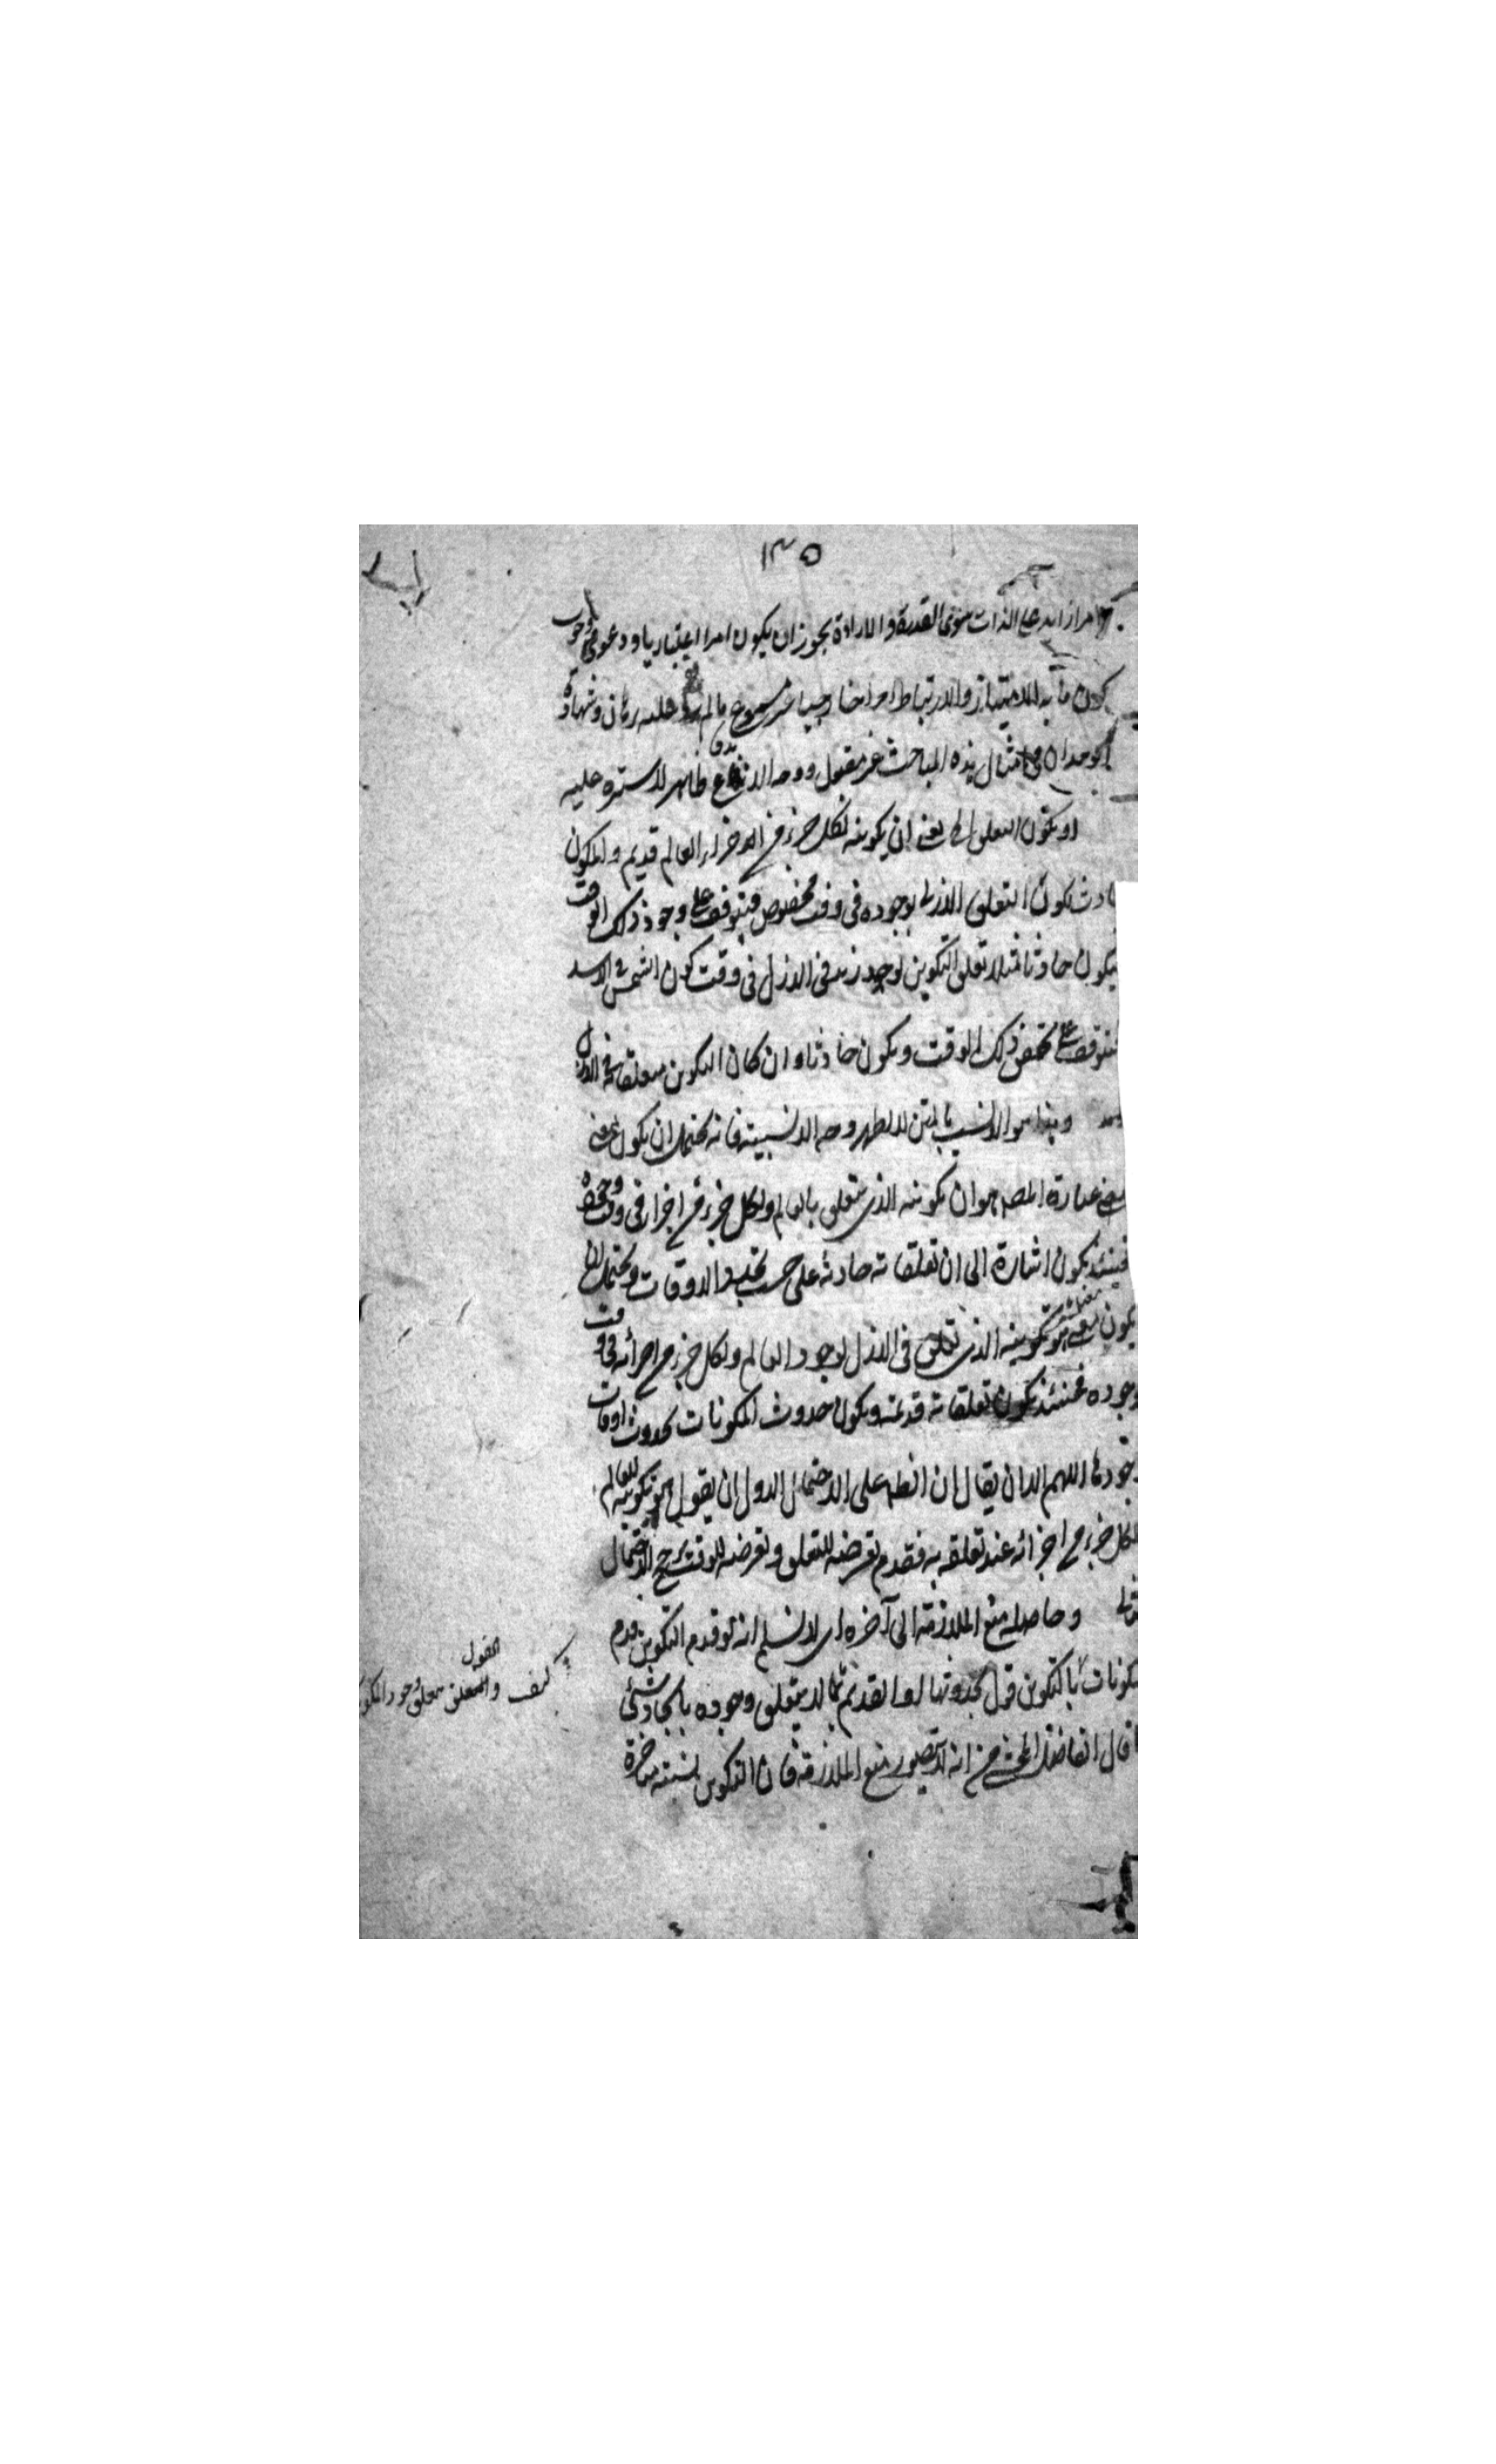 ١٣٥
امرا زائدا على الذات سوى القدرة والارادة يجوز ان يكون امرا اعتباريا ودعوى وجوب
كون ما به الامتياز والارتباط امرا خارجيا غير مسموع ما لم عليه برهان وشهادة
الوجدان في امثال هذه المباحث غير مقبول ووجه الاندفاع ظاهر لا سترة عليه
او يكون التعلق الخ يعني ان تكوينه لكل جزء من الاجزاء العالم قديم والمكون
حادث بكون التعلق الازلي بوجوده في وقت مخصوص فيتوقف على وجود ذلك الوقت
فيكون حادثا مثلا تعلق التكوين لوجود زيد في الازل في وقت كون الشمس في الاسد
فيتوقف على ذلك الوقت ويكون حادثا وان كان التكوين متعلقا في الازل
وهذا هو الانسب بالمتن لا يظهر وجه الانسبية فانه يحتمل ان يكون
عبارة المصه هو ان تكوينه الذي يتعلق بالعالم ولكل جزء من اجزائه في وقت
فحينئذ يكون اشارة الى ان تعلقاته حادثة على حسب تجدد الاوقات ويحتمل ان
يكون هو تكوينه الذي تعلق في الازل لوجود العالم ولكل جزء من اجزائه في وقت
وجوده فحينئذ يكون تعلقاته قديمة ويكون حدوث المكونات بحدوث اوقات
وجودها اللهم الا ان يقال ان الظ على الاحتمال الاول ان يقول هو تكوينه للعالم
لكل جزء من اجزائه عند تعلقه به فعدم تعرضه للتعلق وتعرضه للوقت يرجح الاحتمال
الثاني وحاصله منع الملازمة الى آخره اي لا نسلم انه لو قدم التكوين قدم
المكونات بالتكوين قول بحدوثها اذ القديم ما لا يتعلق وجوده بايجاد شيء
قال الفاضل المحشي من انه لا يتصور منع الملازمة فان التكوين نسبة متاخرة
القول
كيف والتعلق بتعلق وجود المكون